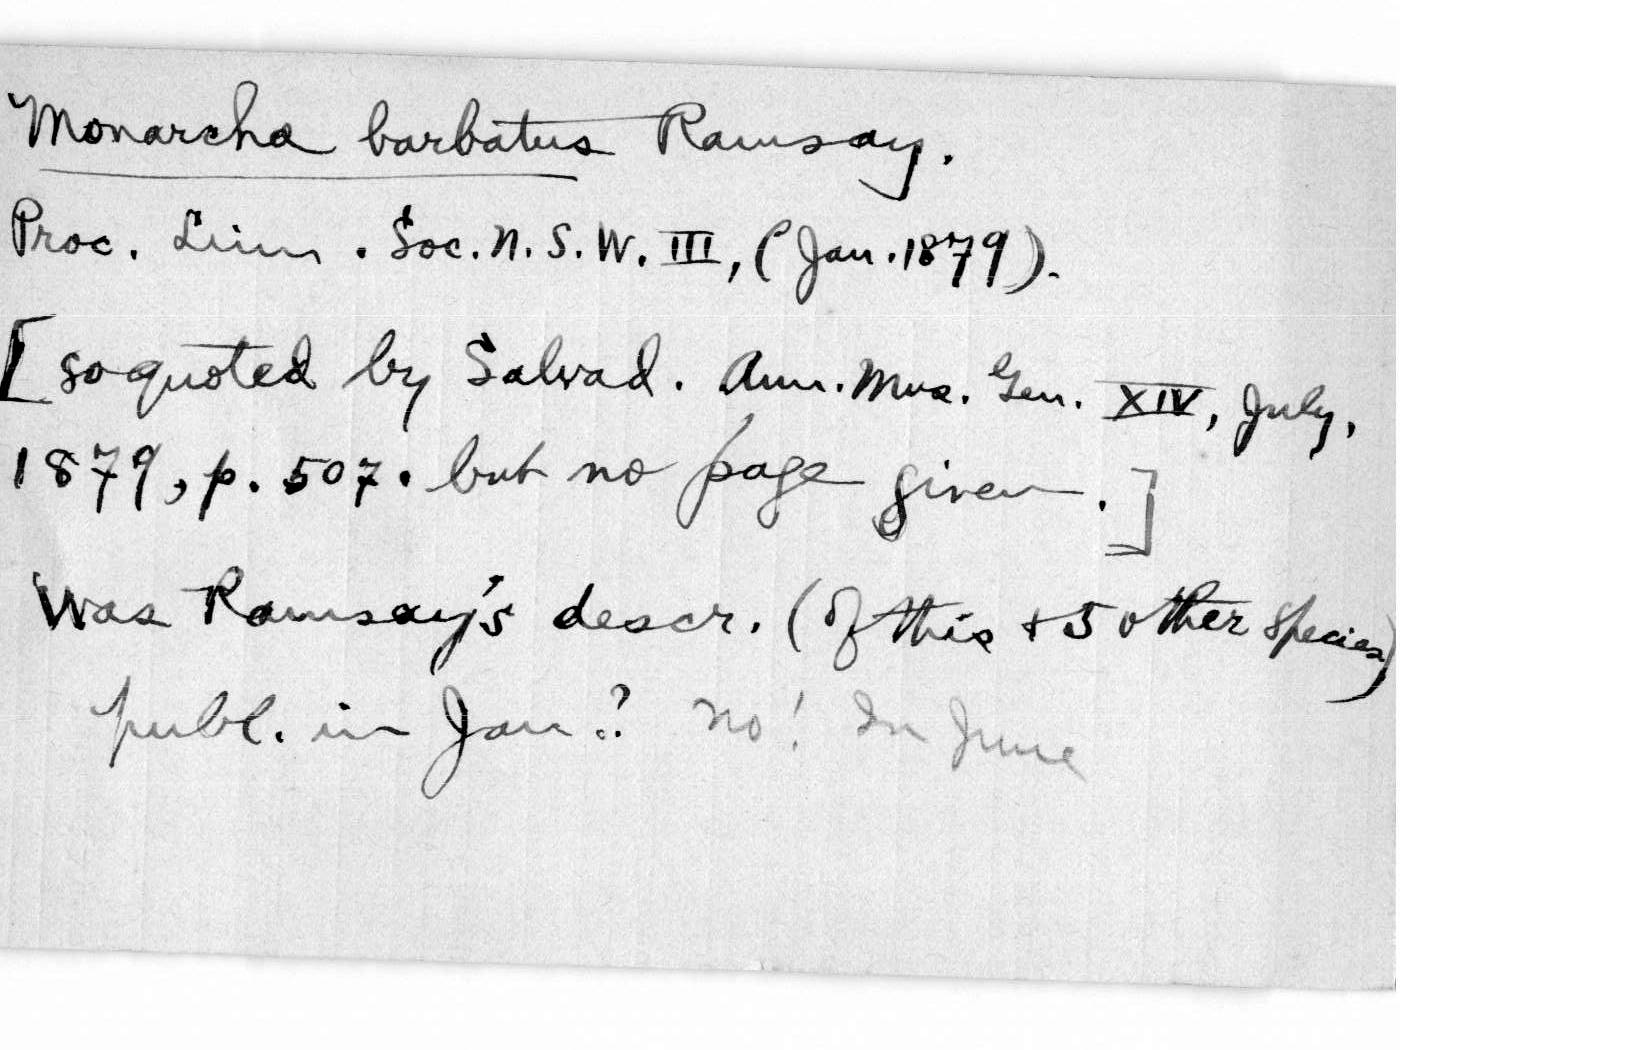 Monarcha barbatus Ramsay.
Proc. Linn. Soc. N. S. W. III, (Jan. 1879).
[so quoted by Salvad. Ann. Mus. Gen. XIV, July,
1879, p. 507. but no page given.]
Was Ramsay's descr. (of this + 5 other species)
publ. in Jan.? No! In June